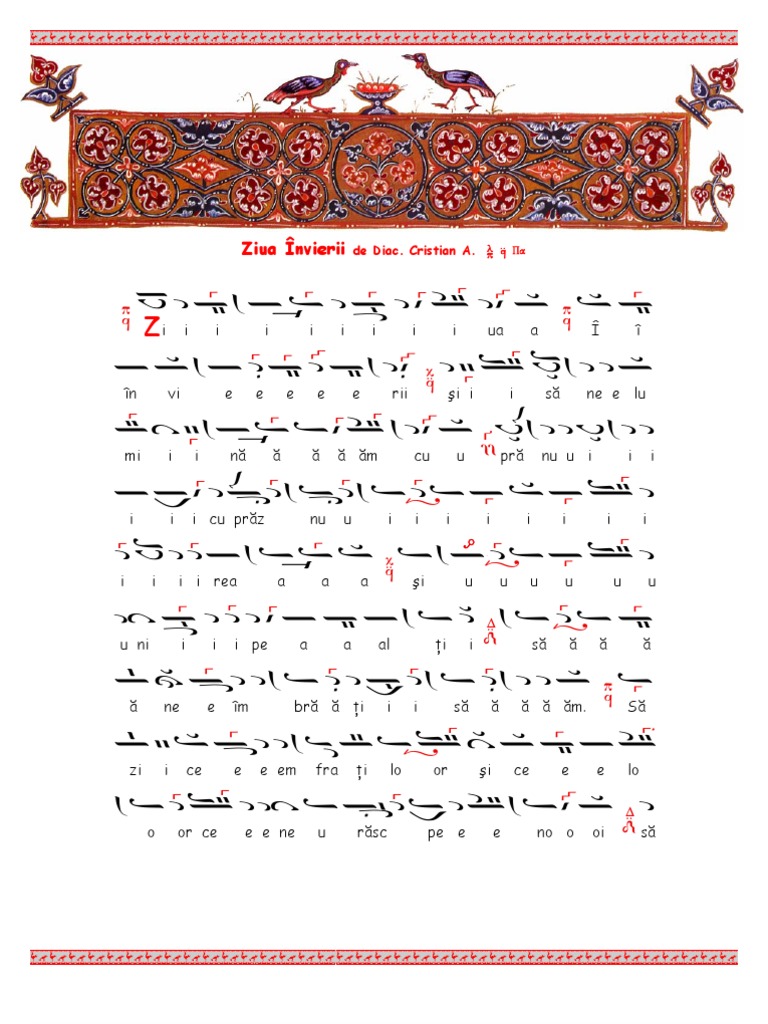 Ziua Învierii de Diac. Cristian A. λ π q̈ Πα
π q Zi i i i i i i i i ua a π q Î î
în vi e e e e e rii χ q̈ şi i i să ne e lu
mi i i nă ă ă ă ăm cu u pră nu u i i i
i i i cu prăz nu u i i i i i i i
i i i i rea a a a χ q̈ şi u u u u u u
u ni i i i pe a a al ţi i Δ să ă ă ă
ă ne e îm bră ă ţi i i să ă ă ă ăm. π q Să
zi i ce e e em fra ţi lo or şi ce e e lo
o or ce e e ne u răsc pe e e no o oi Δ să